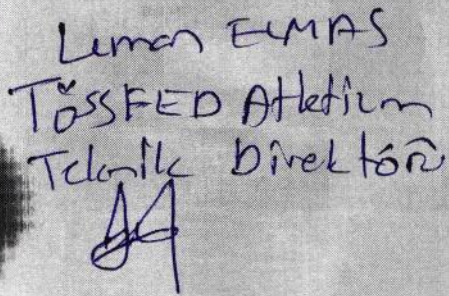 Leman ELMAS
TÖSSFED Atletizm
Teknik Direktörü